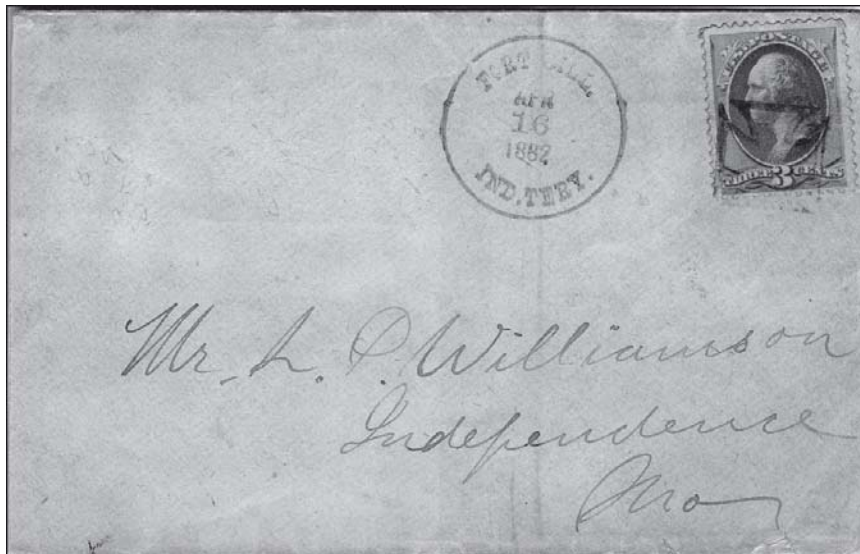 FORT SILL.
APR
16
1882
IND. TERY.
U.S. POSTAGE
THREE 3 CENTS
Mr. L. P. Williamson
Independence
Mo